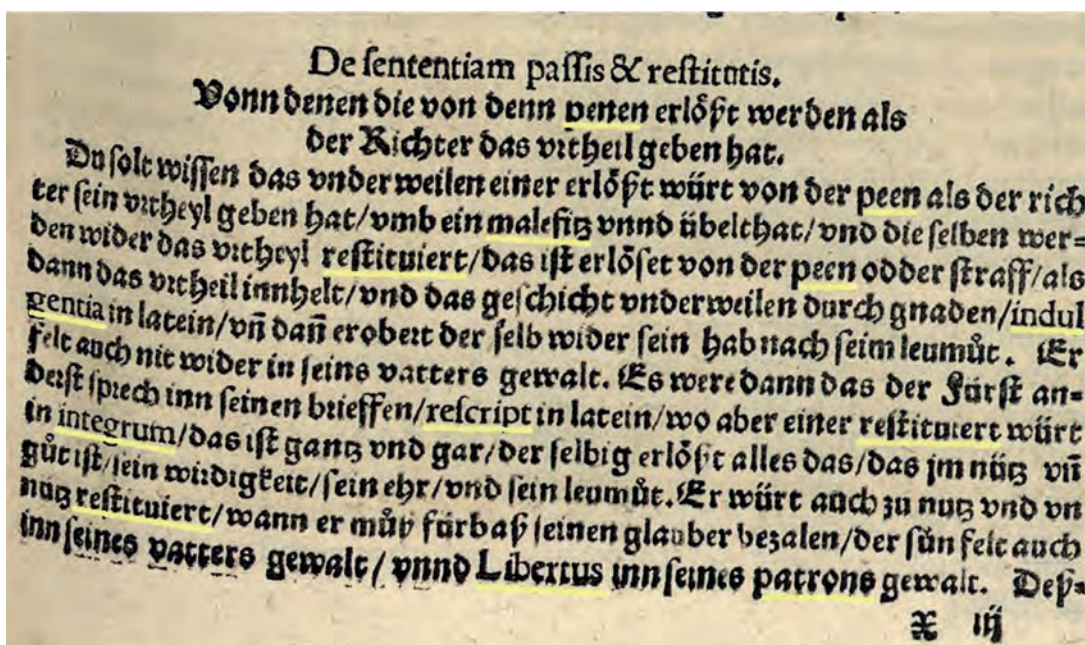 De ſententiam paſſis & reſtitutis.
Vonn denen die von denn penen erlöſzt werden als
der Richter das vrtheil geben hat.
Du ſolt wiſſen das vnderweilen einer erlöſzt würt von der peen als der rich
ter ſein vrtheyl geben hat/vmb ein malefitz vnnd übelthat/vnd die ſelben wer⸗
den wider das vrtheyl reſtituiert/das iſt erlöſet von der peen odder ſtraff/als
dann das vrtheil innhelt/vnd das geſchicht vnderweilen durch gnaden/indul
gentia in latein/vn̄ dan̄ erobert der ſelb wider ſein hab nach ſeim leumůt. Er
felt auch nit wider in ſeins vatters gewalt. Es were dann das der Fürſt an⸗
derſt ſprech inn ſeinen brieffen/reſcript in latein/wo aber einer reſtituiert würt
in integrum/das iſt gantz vnd gar/der ſelbig erlöſzt alles das/das jm nütz vn̄
gůt iſt/ſein wirdigkeit/ſein ehr/vnd ſein leumůt. Er würt auch zu nutz vnd vn
nutz reſtituiert/wann er můſz fürbaſz ſeinen glauber bezalen/der ſün felt auch
inn ſeines vatters gewalt/vnnd Libertus inn ſeines patrons gewalt. Deſz⸗
X iij